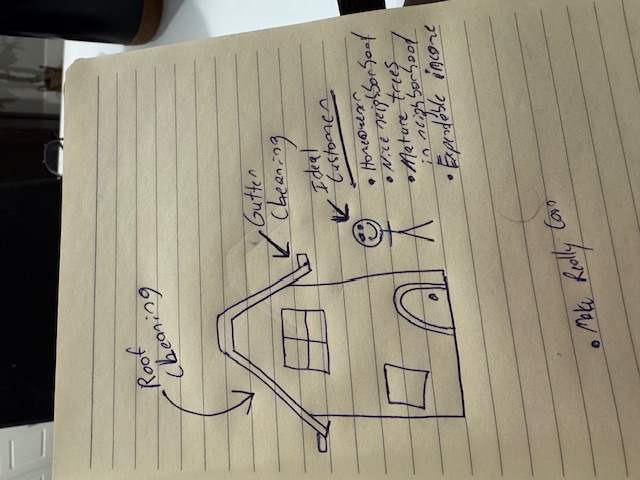 Roof
Cleaning
Gutter
Cleaning
Ideal
Customer
• Homeowner
• Nice neighborhood
• Mature trees
in neighborhood
• Expendable income
• Make Really